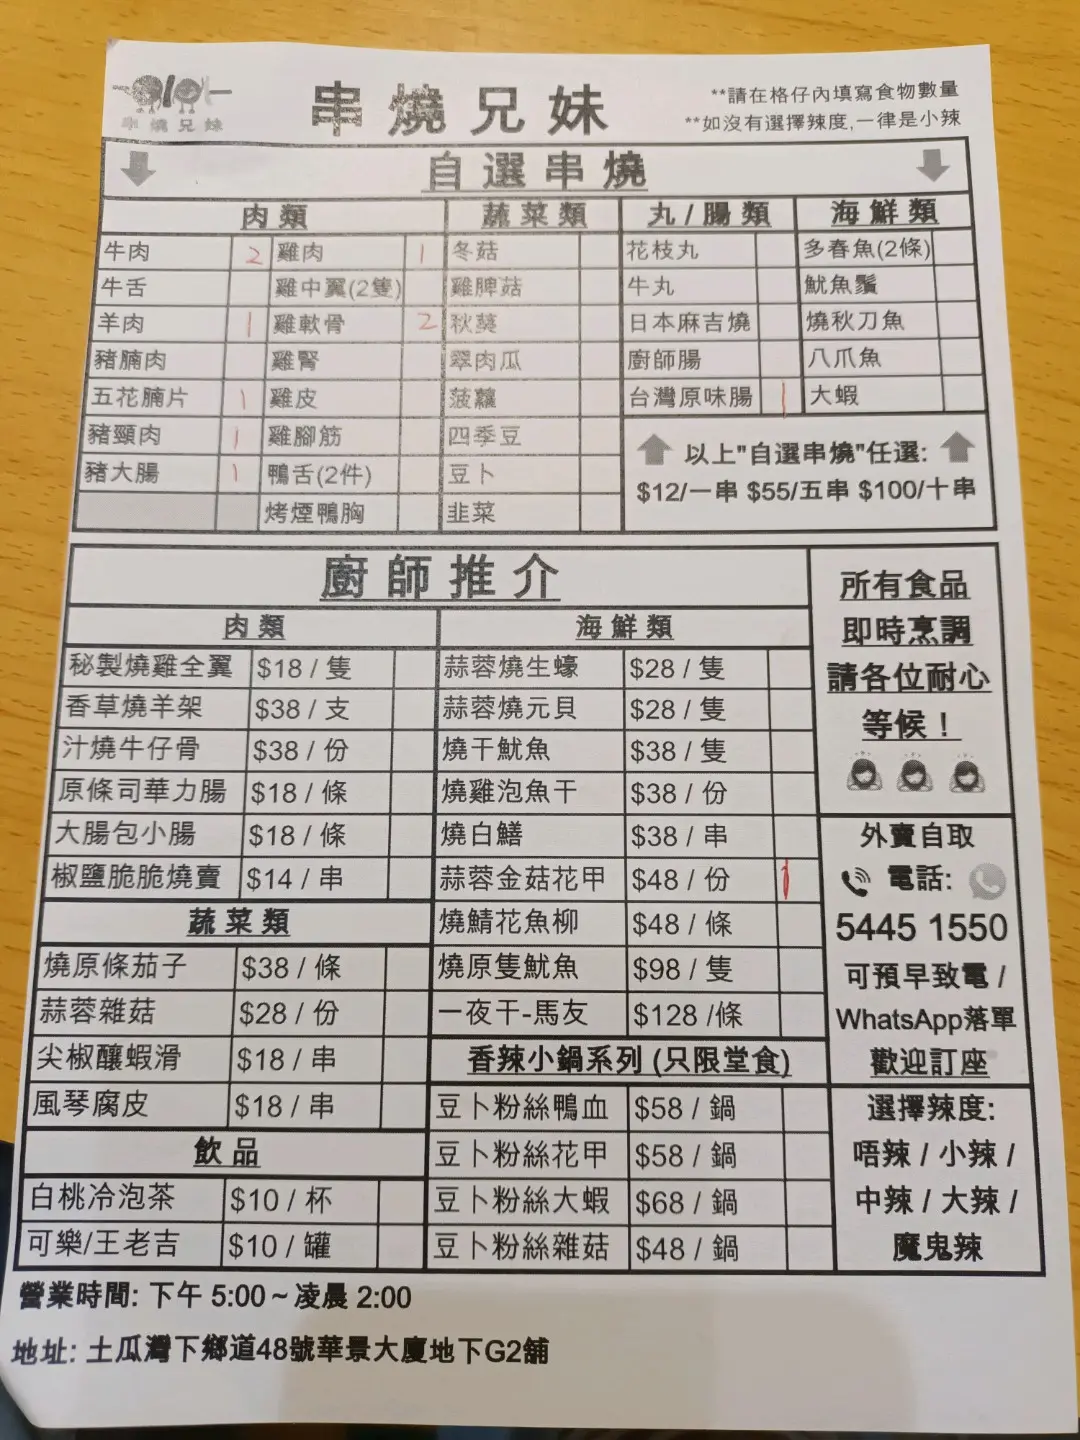 串燒兄妹
串燒兄妹
**請在格仔內填寫食物數量
**如沒有選擇辣度,一律是小辣
自選串燒
肉類 蔬菜類 丸/腸類 海鮮類
牛肉 2 雞肉 1 冬菇 花枝丸 多春魚(2條)
牛舌 雞中翼(2隻) 雞脾菇 牛丸 魷魚鬚
羊肉 1 雞軟骨 2 秋葵 日本麻吉燒 燒秋刀魚
豬腩肉 雞腎 翠肉瓜 廚師腸 八爪魚
五花腩片 1 雞皮 菠蘿 台灣原味腸 1 大蝦
豬頸肉 1 雞腳筋 四季豆
豬大腸 1 鴨舌(2件) 豆卜
烤煙鴨胸 韭菜
以上"自選串燒"任選:
$12/一串 $55/五串 $100/十串
廚師推介
肉類 海鮮類
秘製燒雞全翼 $18 / 隻 蒜蓉燒生蠔 $28 / 隻
香草燒羊架 $38 / 支 蒜蓉燒元貝 $28 / 隻
汁燒牛仔骨 $38 / 份 燒干魷魚 $38 / 隻
原條司華力腸 $18 / 條 燒雞泡魚干 $38 / 份
大腸包小腸 $18 / 條 燒白鱔 $38 / 串
椒鹽脆脆燒賣 $14 / 串 蒜蓉金菇花甲 $48 / 份 1
蔬菜類 燒鯖花魚柳 $48 / 條
燒原條茄子 $38 / 條 燒原隻魷魚 $98 / 隻
蒜蓉雜菇 $28 / 份 一夜干-馬友 $128 /條
尖椒釀蝦滑 $18 / 串 香辣小鍋系列 (只限堂食)
風琴腐皮 $18 / 串 豆卜粉絲鴨血 $58 / 鍋
飲品 豆卜粉絲花甲 $58 / 鍋
白桃冷泡茶 $10 / 杯 豆卜粉絲大蝦 $68 / 鍋
可樂/王老吉 $10 / 罐 豆卜粉絲雜菇 $48 / 鍋
所有食品
即時烹調
請各位耐心
等候！
外賣自取
電話:
5445 1550
可預早致電 /
WhatsApp落單
歡迎訂座
選擇辣度:
唔辣 / 小辣 /
中辣 / 大辣 /
魔鬼辣
營業時間: 下午 5:00 ~ 凌晨 2:00
地址: 土瓜灣下鄉道48號華景大廈地下G2舖